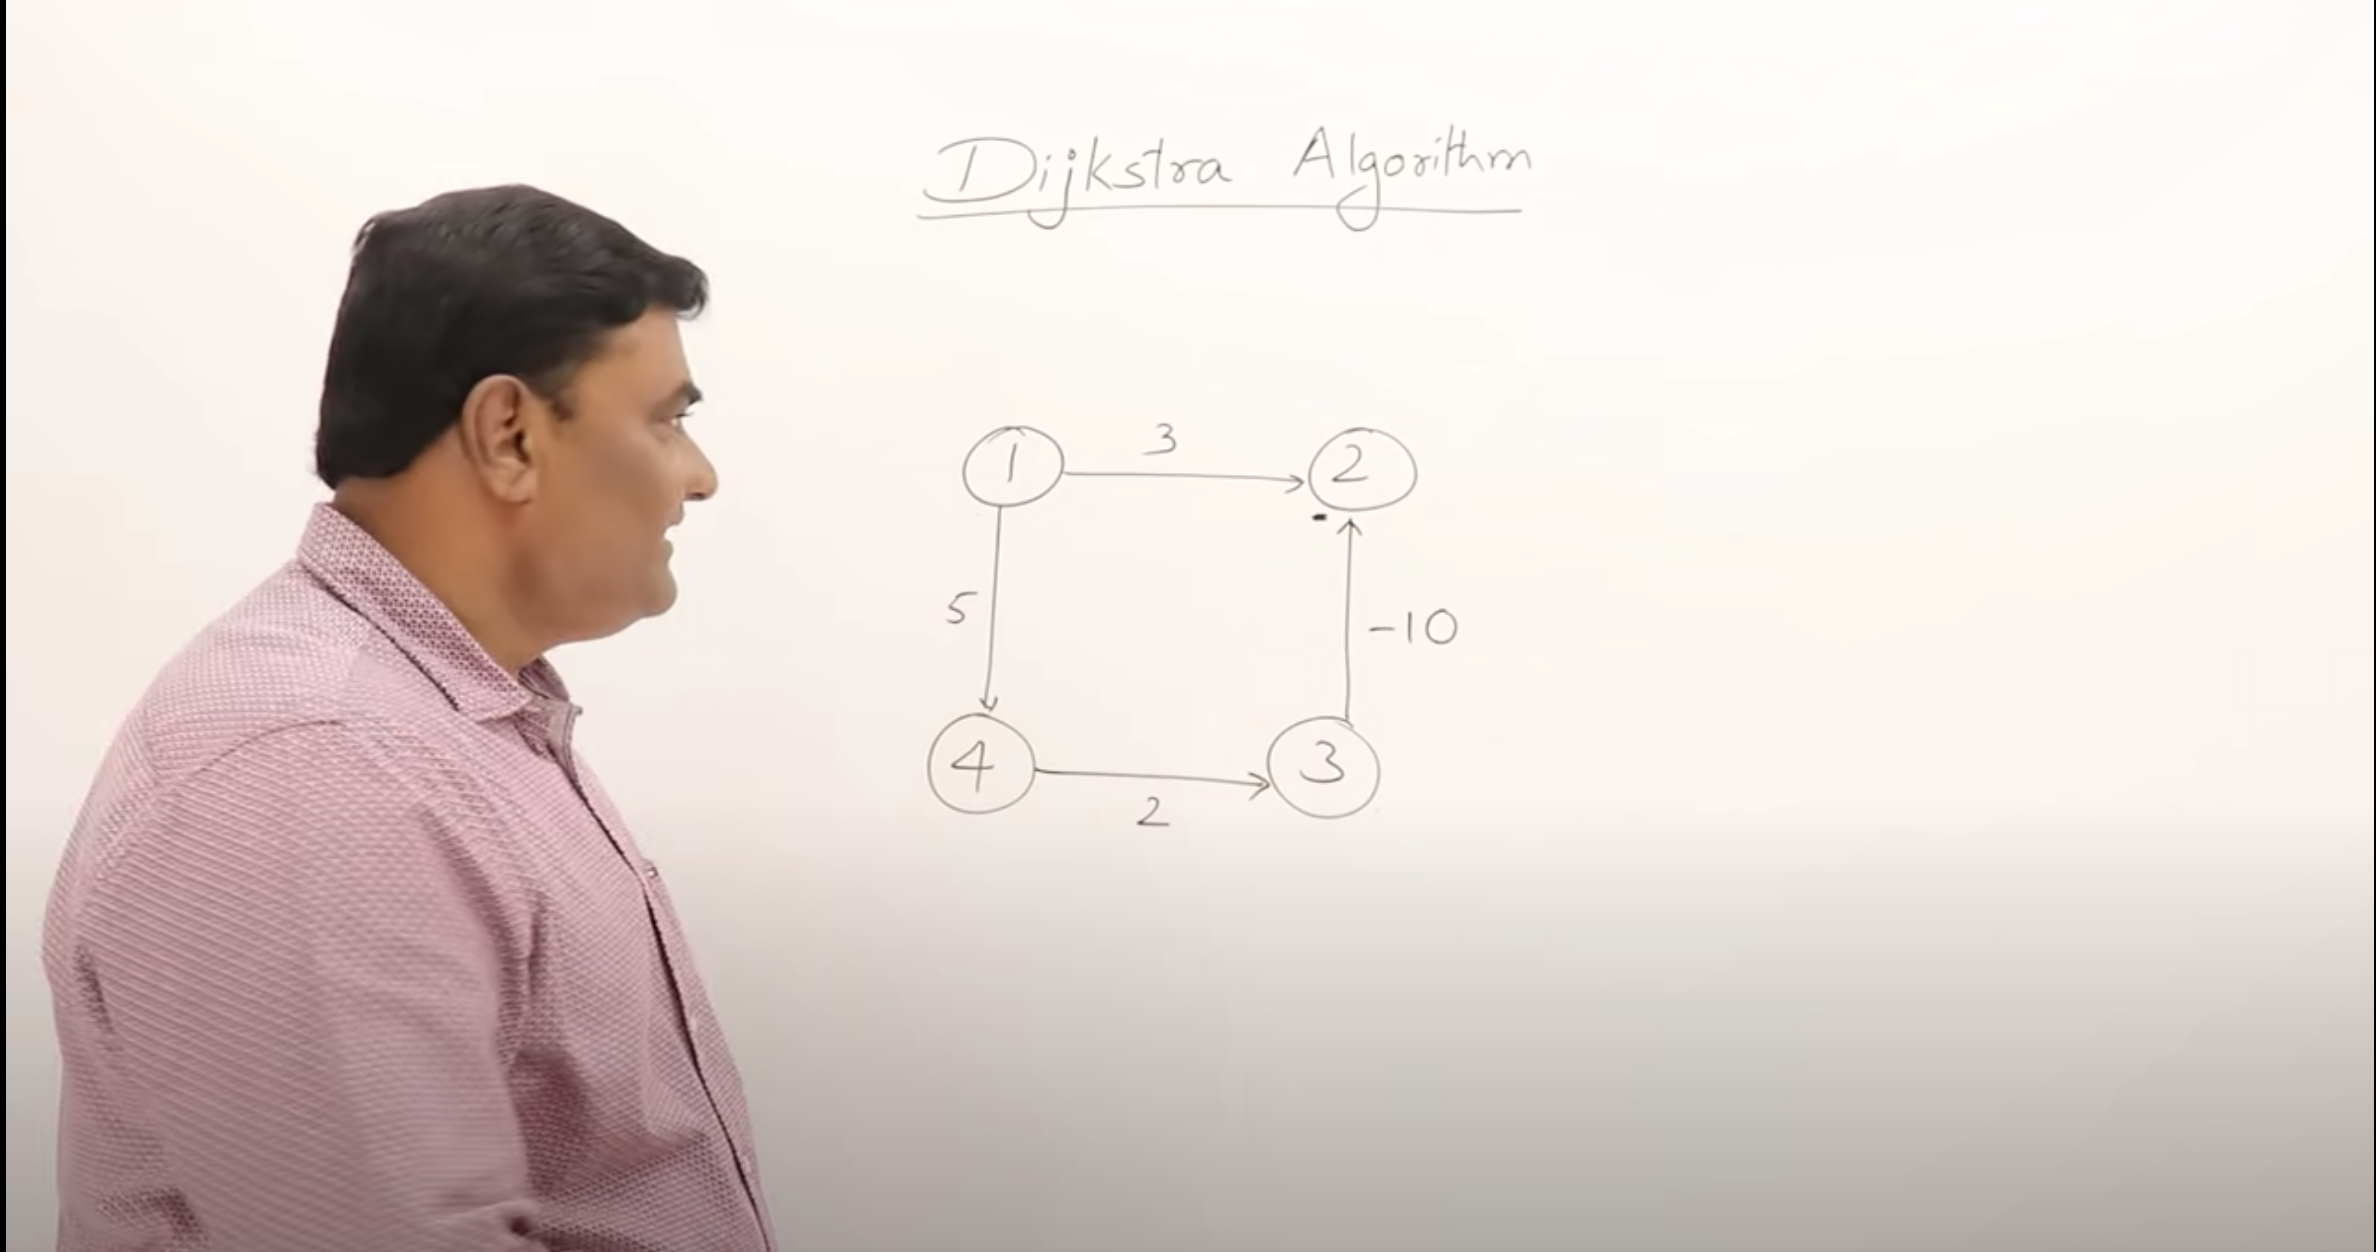 Dijkstra Algorithm
3
1 2
5 -10
4 3
2